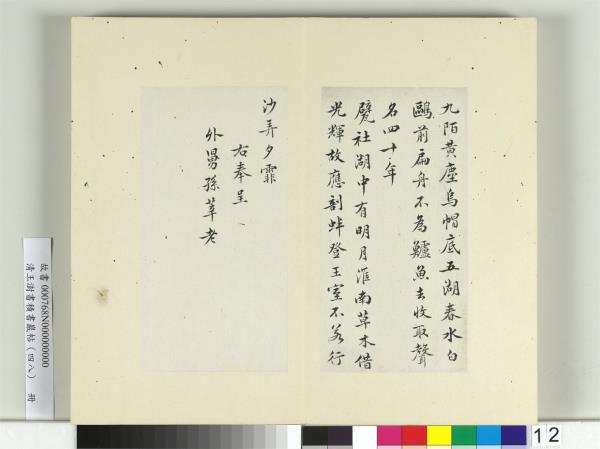 九陌黃塵烏帽底五湖春水白
鷗前扁舟不為鱸魚去收取聲
名四十年
甓社湖中有明月淮南草木借
光輝故應剖蚌登王室不若行
沙弄夕霏
右奉呈
外舅孫莘老
故書 000768N000000000
清王澍書積書巖帖(四八) 冊
12